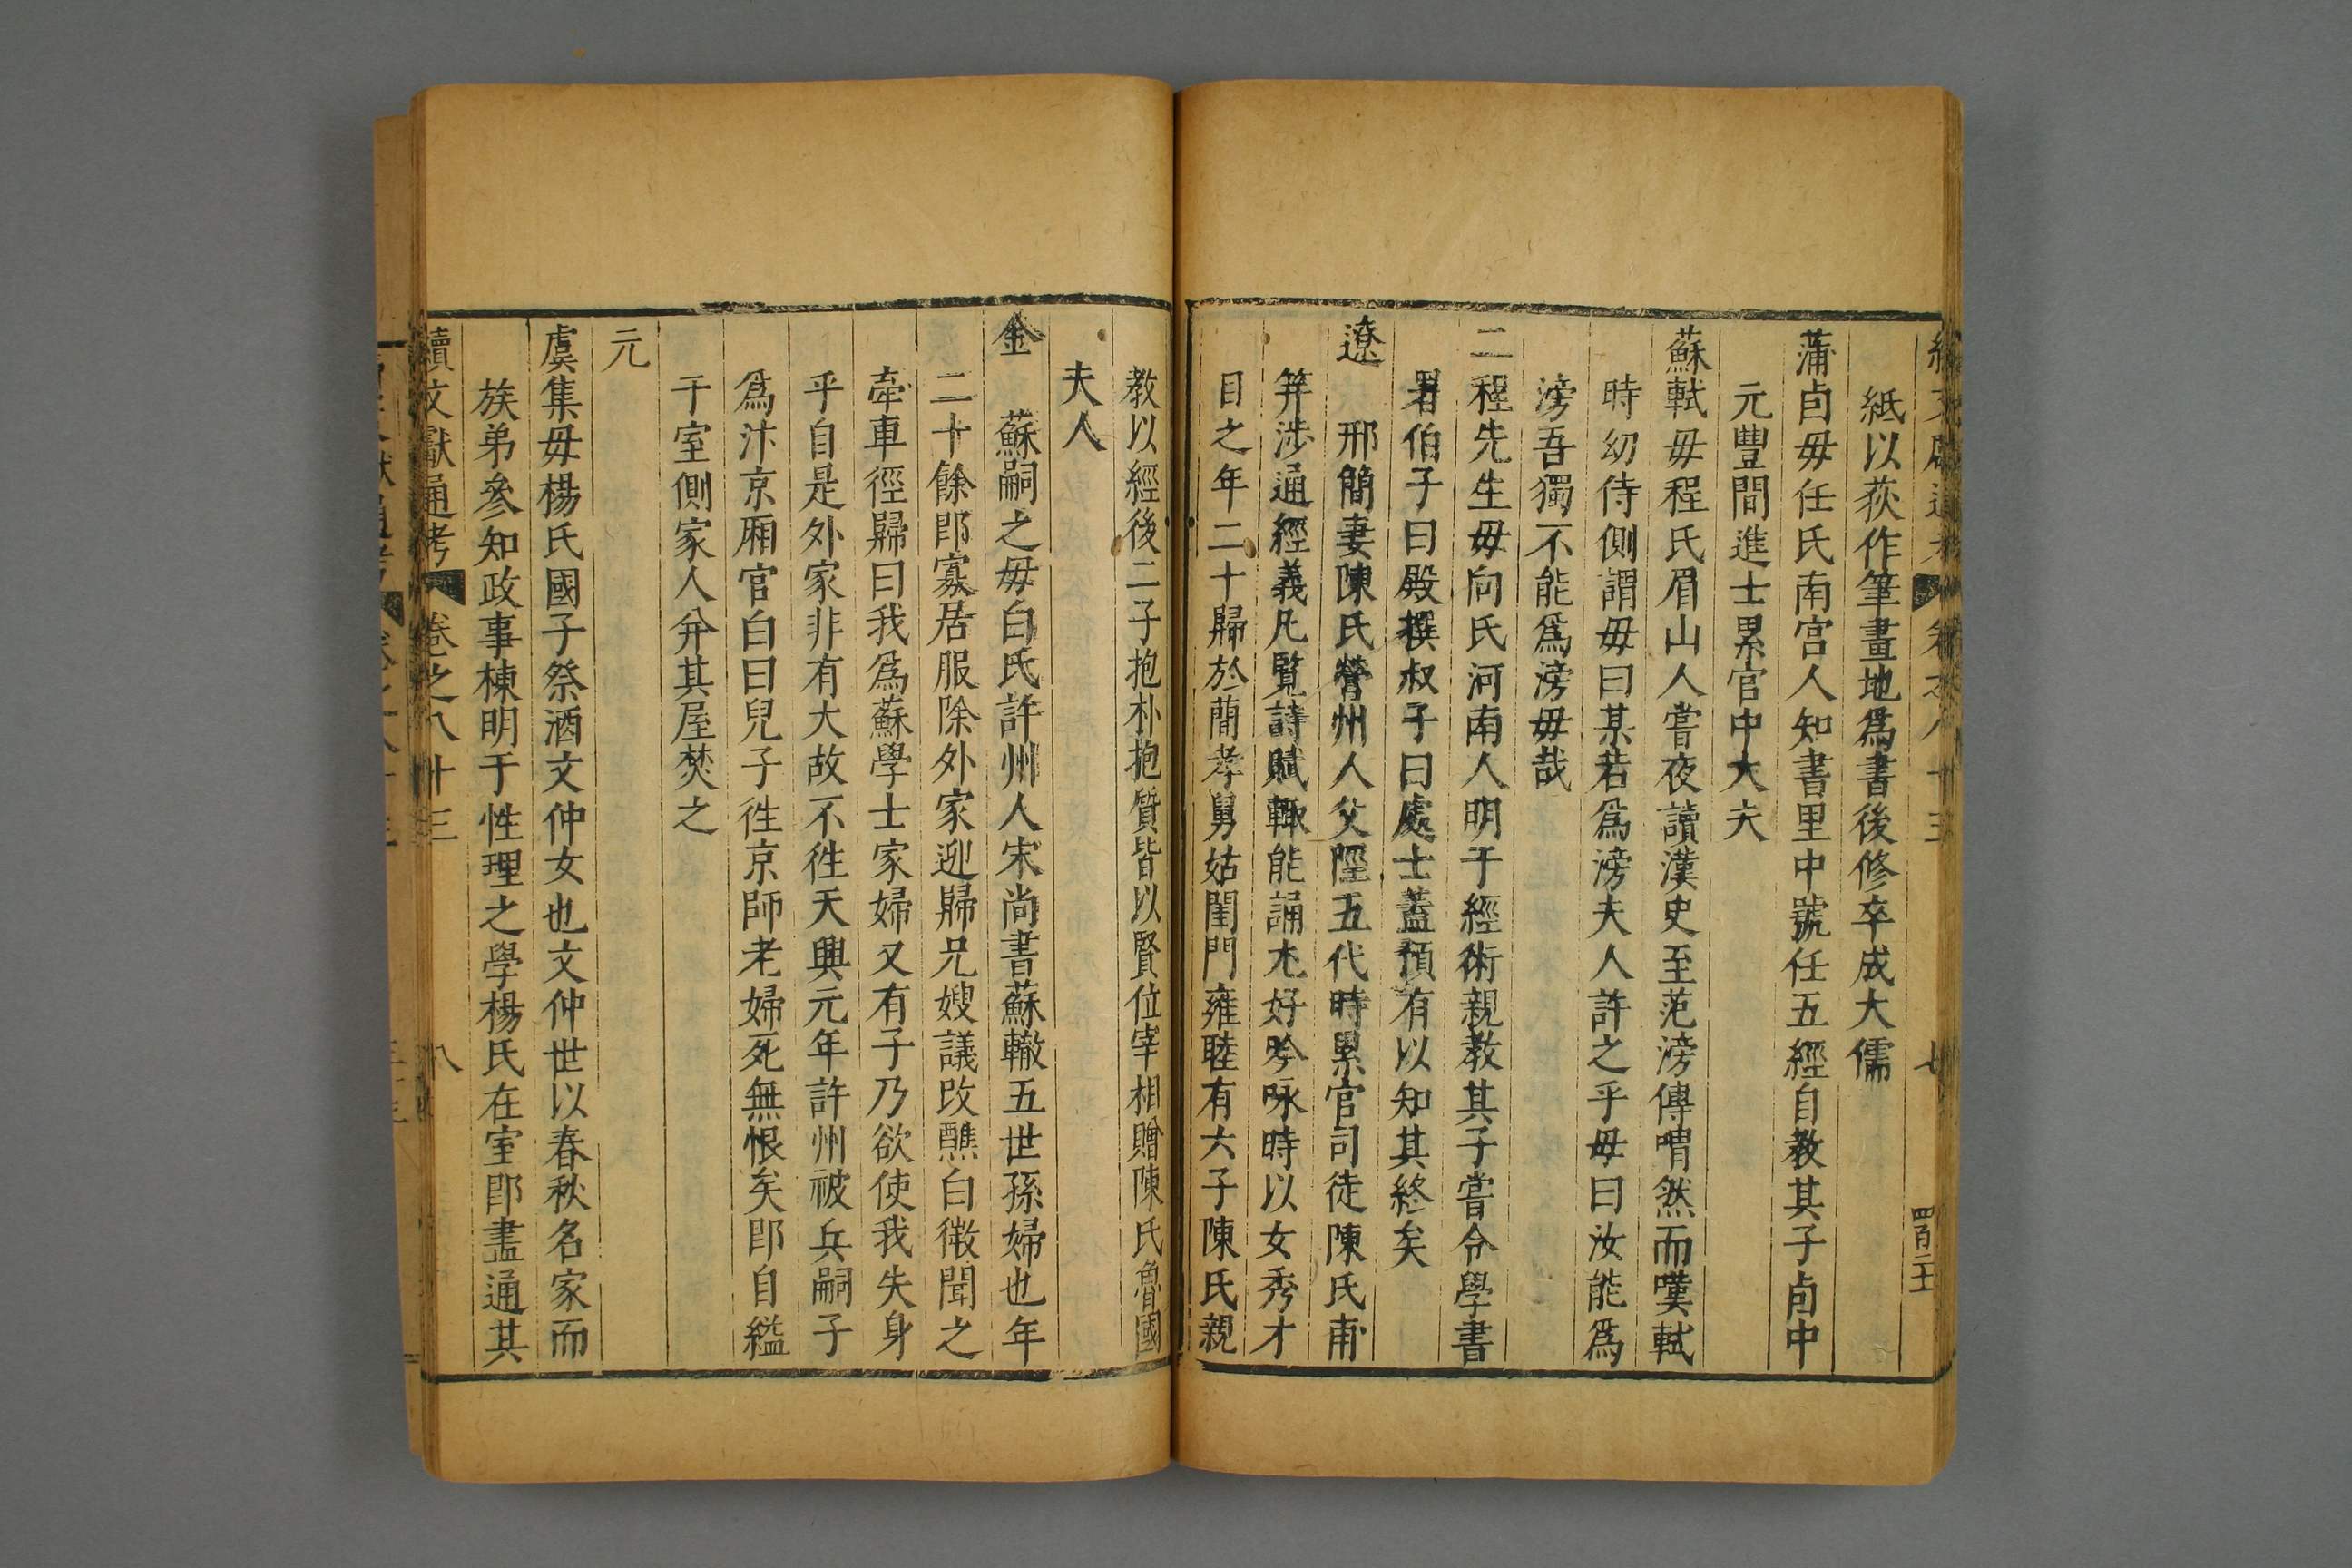 紙以荻作筆畫地爲書後修卒成大儒
蒲卣毋任氏南宫人知書里中號任五經自教其子卣中
元豐間進士累官中大夫
蘇軾毋程氏眉山人嘗夜讀漢史至范滂傳喟然而嘆軾
時幼侍側謂毋曰某若爲滂夫人許之乎毋曰汝能爲
滂吾獨不能爲滂毋哉
二程先生毋向氏河南人明于經術親教其子嘗令學書
署伯子曰殿撰叔子曰處士蓋預有以知其終矣
遼 邢簡妻陳氏營州人父陘五代時累官司徒陳氏甫
笄涉通經義凡覧詩賦輙能誦尤好吟咏時以女秀才
目之年二十歸於蕳孝舅姑閨門雍睦有六子陳氏親
教以經後二子抱朴抱質皆以賢位宰相贈陳氏魯國
夫人
金 蘇嗣之毋白氏許州人宋尚書蘇轍五世孫婦也年
二十餘即寡居服除外家迎歸兄嫂議改醮白微聞之
牽車徑歸曰我爲蘇學士家婦又有子乃欲使我失身
乎自是外家非有大故不徃天興元年許州被兵嗣子
爲汴京廂官白曰兒子徃京師老婦死無恨矣即自縊
于室側家人并其屋焚之
元
虞集毋楊氏國子祭酒文仲女也文仲世以春秋名家而
族弟參知政事棟明于性理之學楊氏在室即盡通其
續文獻通考 卷之八十三 八